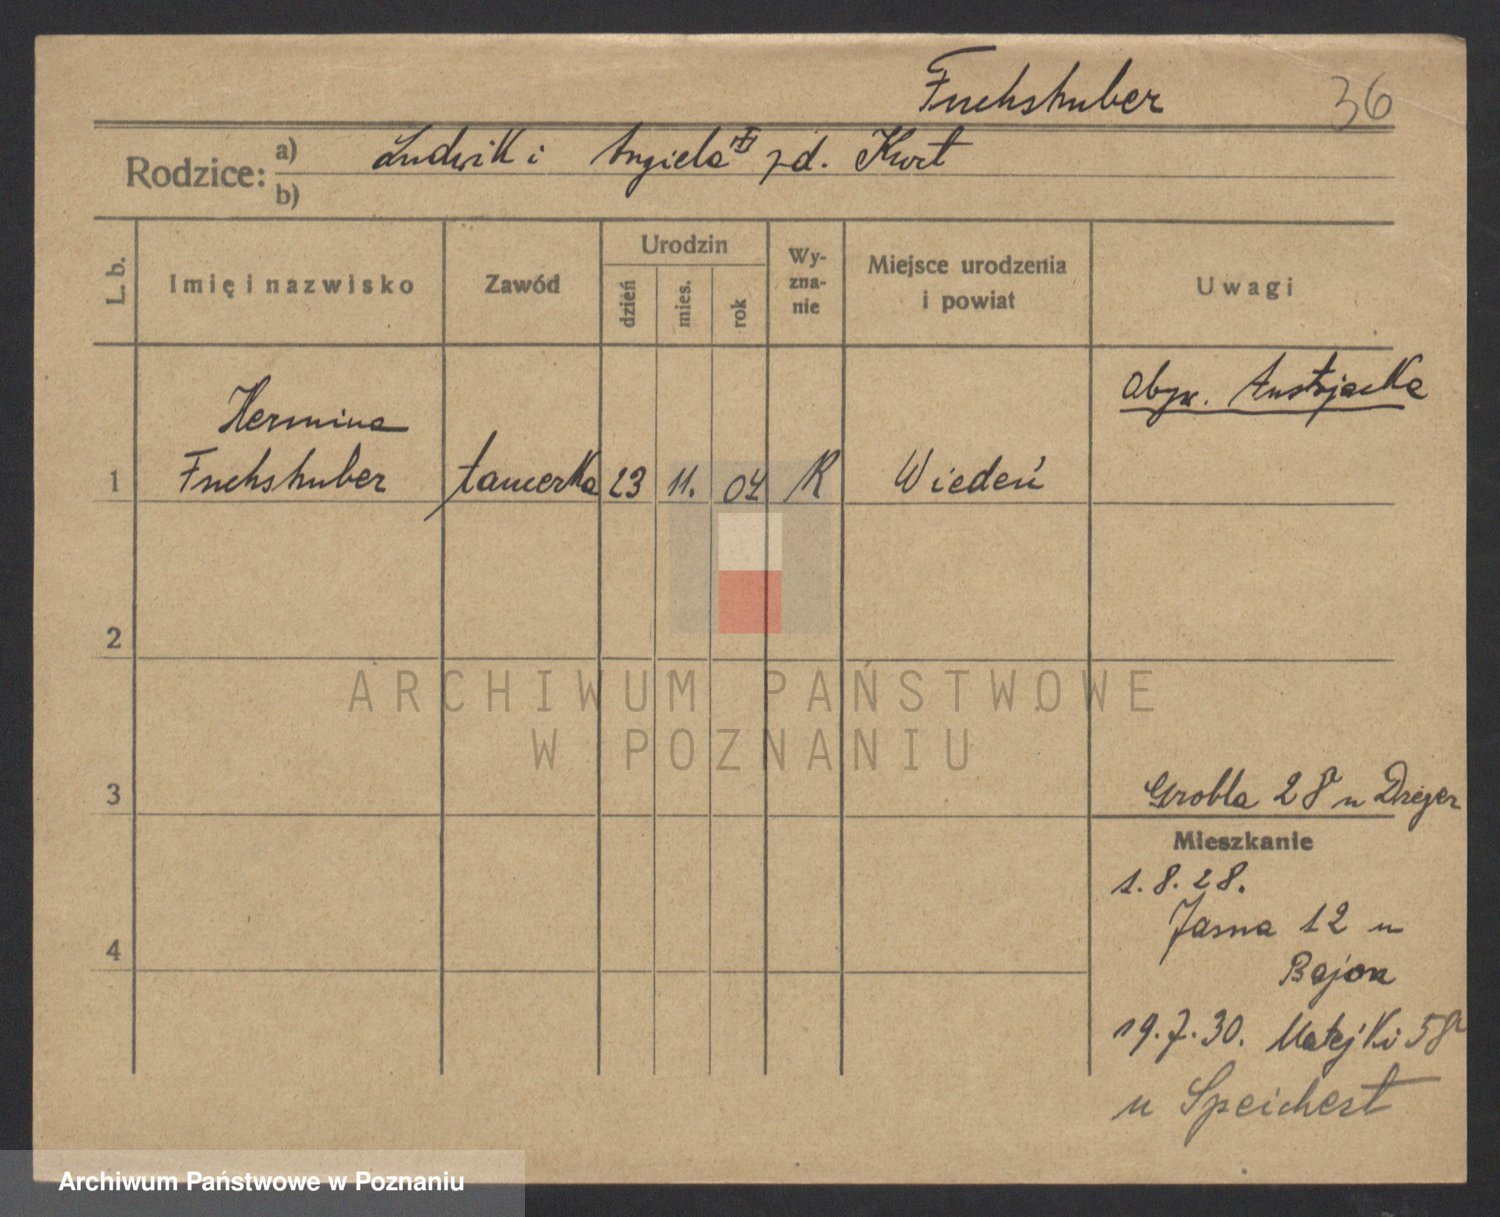 Fuchshuber
36
Rodzice:
a) Ludwik i Angiela zd. Kurt
b)
L. b.
Imię i nazwisko
Zawód
Urodzin
dzień
mies.
rok
Wy-
zna-
nie
Miejsce urodzenia
i powiat
Uwagi
obyw. Austrjacka
Hermina
1 Fuchshuber tancerka 23 11. 04 R Wiedeń
2
ARCHIWUM PAŃSTWOWE
W POZNANIU
3
Grobla 28 u Dreger
Mieszkanie
1.8.28.
Jasna 12 u
4
19.7.30. Matejki 58
u Speichert
Archiwum Państwowe w Poznaniu